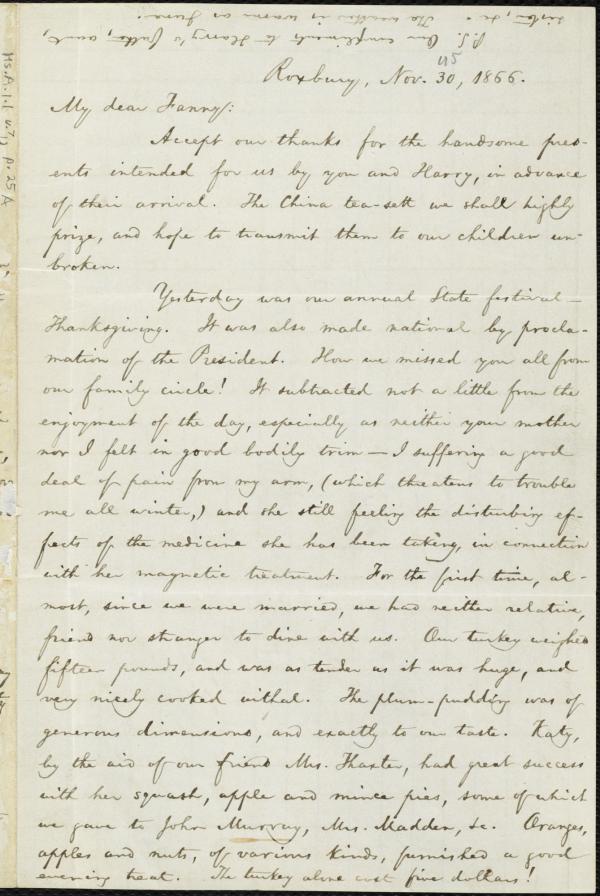 P.S. Our compliments to Harry's father, aunt,
sister, &c. The weather is warm as June.
Roxbury, Nov. 30, 1866.
My dear Fanny:
Accept our thanks for the handsome pres-
ents intended for us by you and Harry, in advance
of their arrival. The China tea-sett we shall highly
prize, and hope to transmit them to our children un-
broken.
Yesterday was our annual State festival—
Thanksgiving. It was also made national by procla-
mation of the President. How we missed you all from
our family circle! It subtracted not a little from the
enjoyment of the day, especially as neither your mother
nor I felt in good bodily trim—I suffering a good
deal of pain from my arm, (which threatens to trouble
me all winter,) and she still feeling the disturbing ef-
fects of the medicine she has been taking, in connection
with her magnetic treatment. For the first time, al-
most, since we were married, we had neither relative,
friend nor stranger to dine with us. Our turkey weighed
fifteen pounds, and was as tender as it was huge, and
very nicely cooked withal. The plum-pudding was of
generous dimensions, and exactly to our taste. Katy,
by the aid of our friend Mrs. Thaxter, had great success
with her squash, apple and mince pies, some of which
we gave to John Murray, Mrs. Madden, &c. Oranges,
apples and nuts, of various kinds, furnished a good
evening treat. The turkey alone cost five dollars!
Ms. A. 1. 1 v. 7, p. 25 A